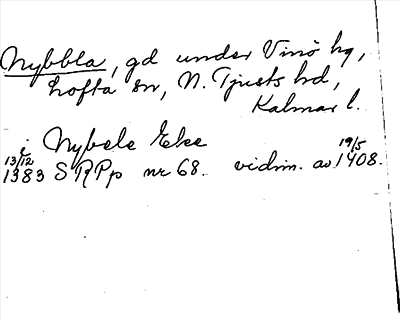 Nybbla, gd under Vinö hg,
Lofta sn, N. Tjusts hd,
Kalmar l.
i Nybele Eke
13/12 1383 SRPp nr 68. vidim. av 19/5 1408.